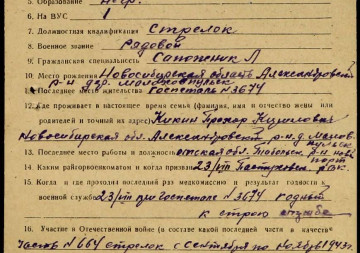 5. Образование
6. На ВУС 1
7. Должностная квалификация Стрелок
8. Военное звание Рядовой
9. Гражданская специальность Сапожник
10. Место рождения Новосибирская область Александровский
р-н дер.
11. Последнее место жительства Госпиталь №3674
12. Где проживает в настоящее время семья (фамилия, имя и отчество жены или
родителей и точный их адрес) Кикин Прохор
Новосибирская обл. Александровский р-н д.
13. Последнее место работы и должность обл.
14. Каким райгорвоенкоматом и когда призван 23/VII
15. Когда и где проходил последний раз медкомиссию и результат годности к
военной службе 23/VII при госпитале №3674 годный
к строю
16. Участие в Отечественной войне (в составе какой последней части и качестве
Часть №664 стрелок с сентября по ноябрь 1943 г.